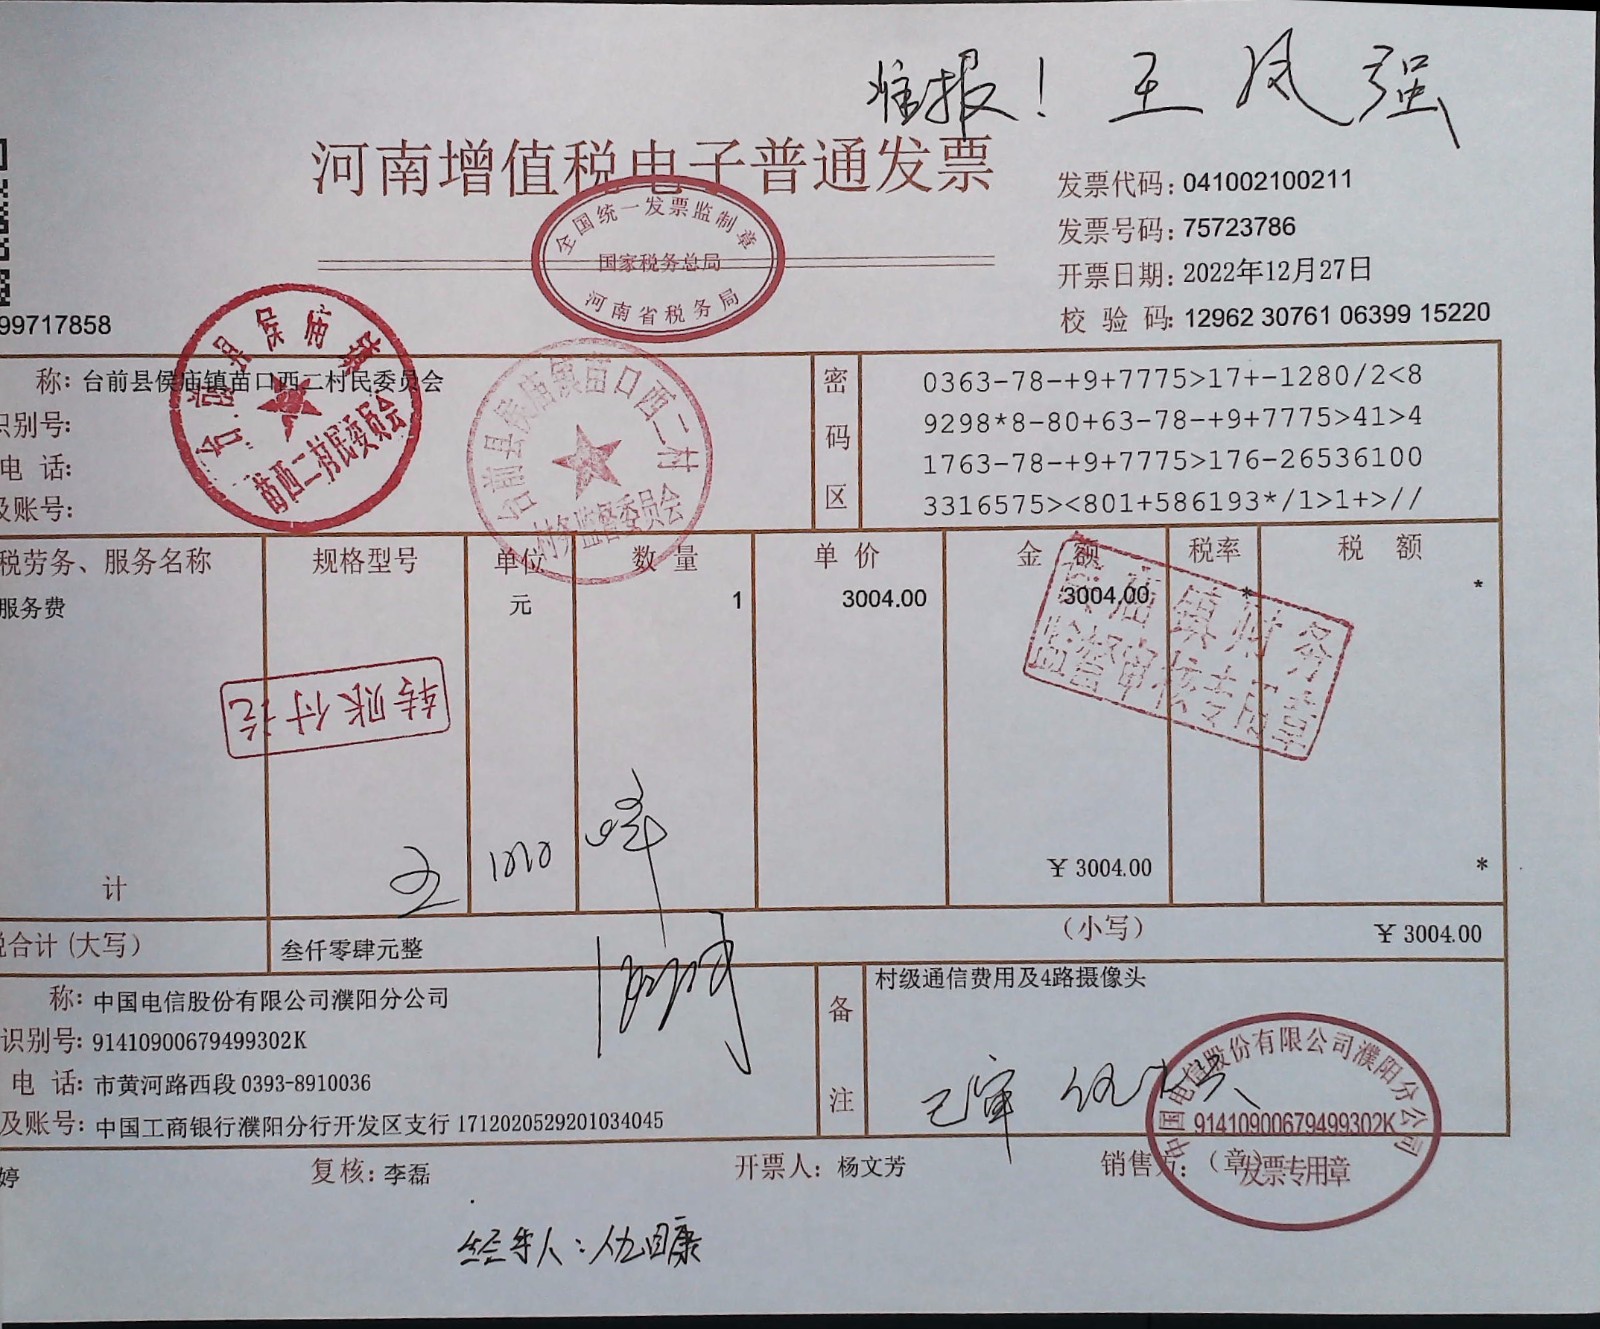 准报！ 王凤强
河南增值税电子普通发票
发票代码：041002100211
发票号码：75723786
开票日期：2022年12月27日
校验码：12962 30761 06399 15220
全国统一发票监制章
国家税务总局
河南省税务局
99717858
称：台前县侯庙镇苗口西二村民委员会
识别号：
电 话：
及账号：
台前县侯庙镇
苗西二村民委员会
台前县侯庙镇苗口西二村
村务监督委员会
密码区
0363-78-+9+7775>17+-1280/2<8
9298*8-80+63-78-+9+7775>41>4
1763-78-+9+7775>176-26536100
3316575><801+586193*/1>1+>//
税劳务、服务名称 规格型号 单位 数 量 单 价 金 额 税率 税 额
服务费 元 1 3004.00 3004.00 * *
侯庙镇财务
监督审核专用章
转账付讫
计 ￥3004.00 *
税合计(大写) 叁仟零肆元整 (小写) ￥3004.00
称：中国电信股份有限公司濮阳分公司
识别号：91410900679499302K
电 话：市黄河路西段0393-8910036
及账号：中国工商银行濮阳分行开发区支行1712020529201034045
备注
村级通信费用及4路摄像头
已审
中国电信股份有限公司濮阳分公司
91410900679499302K
发票专用章
婷 复核：李磊 开票人：杨文芳 销售方：（章）
经手人：仇目康